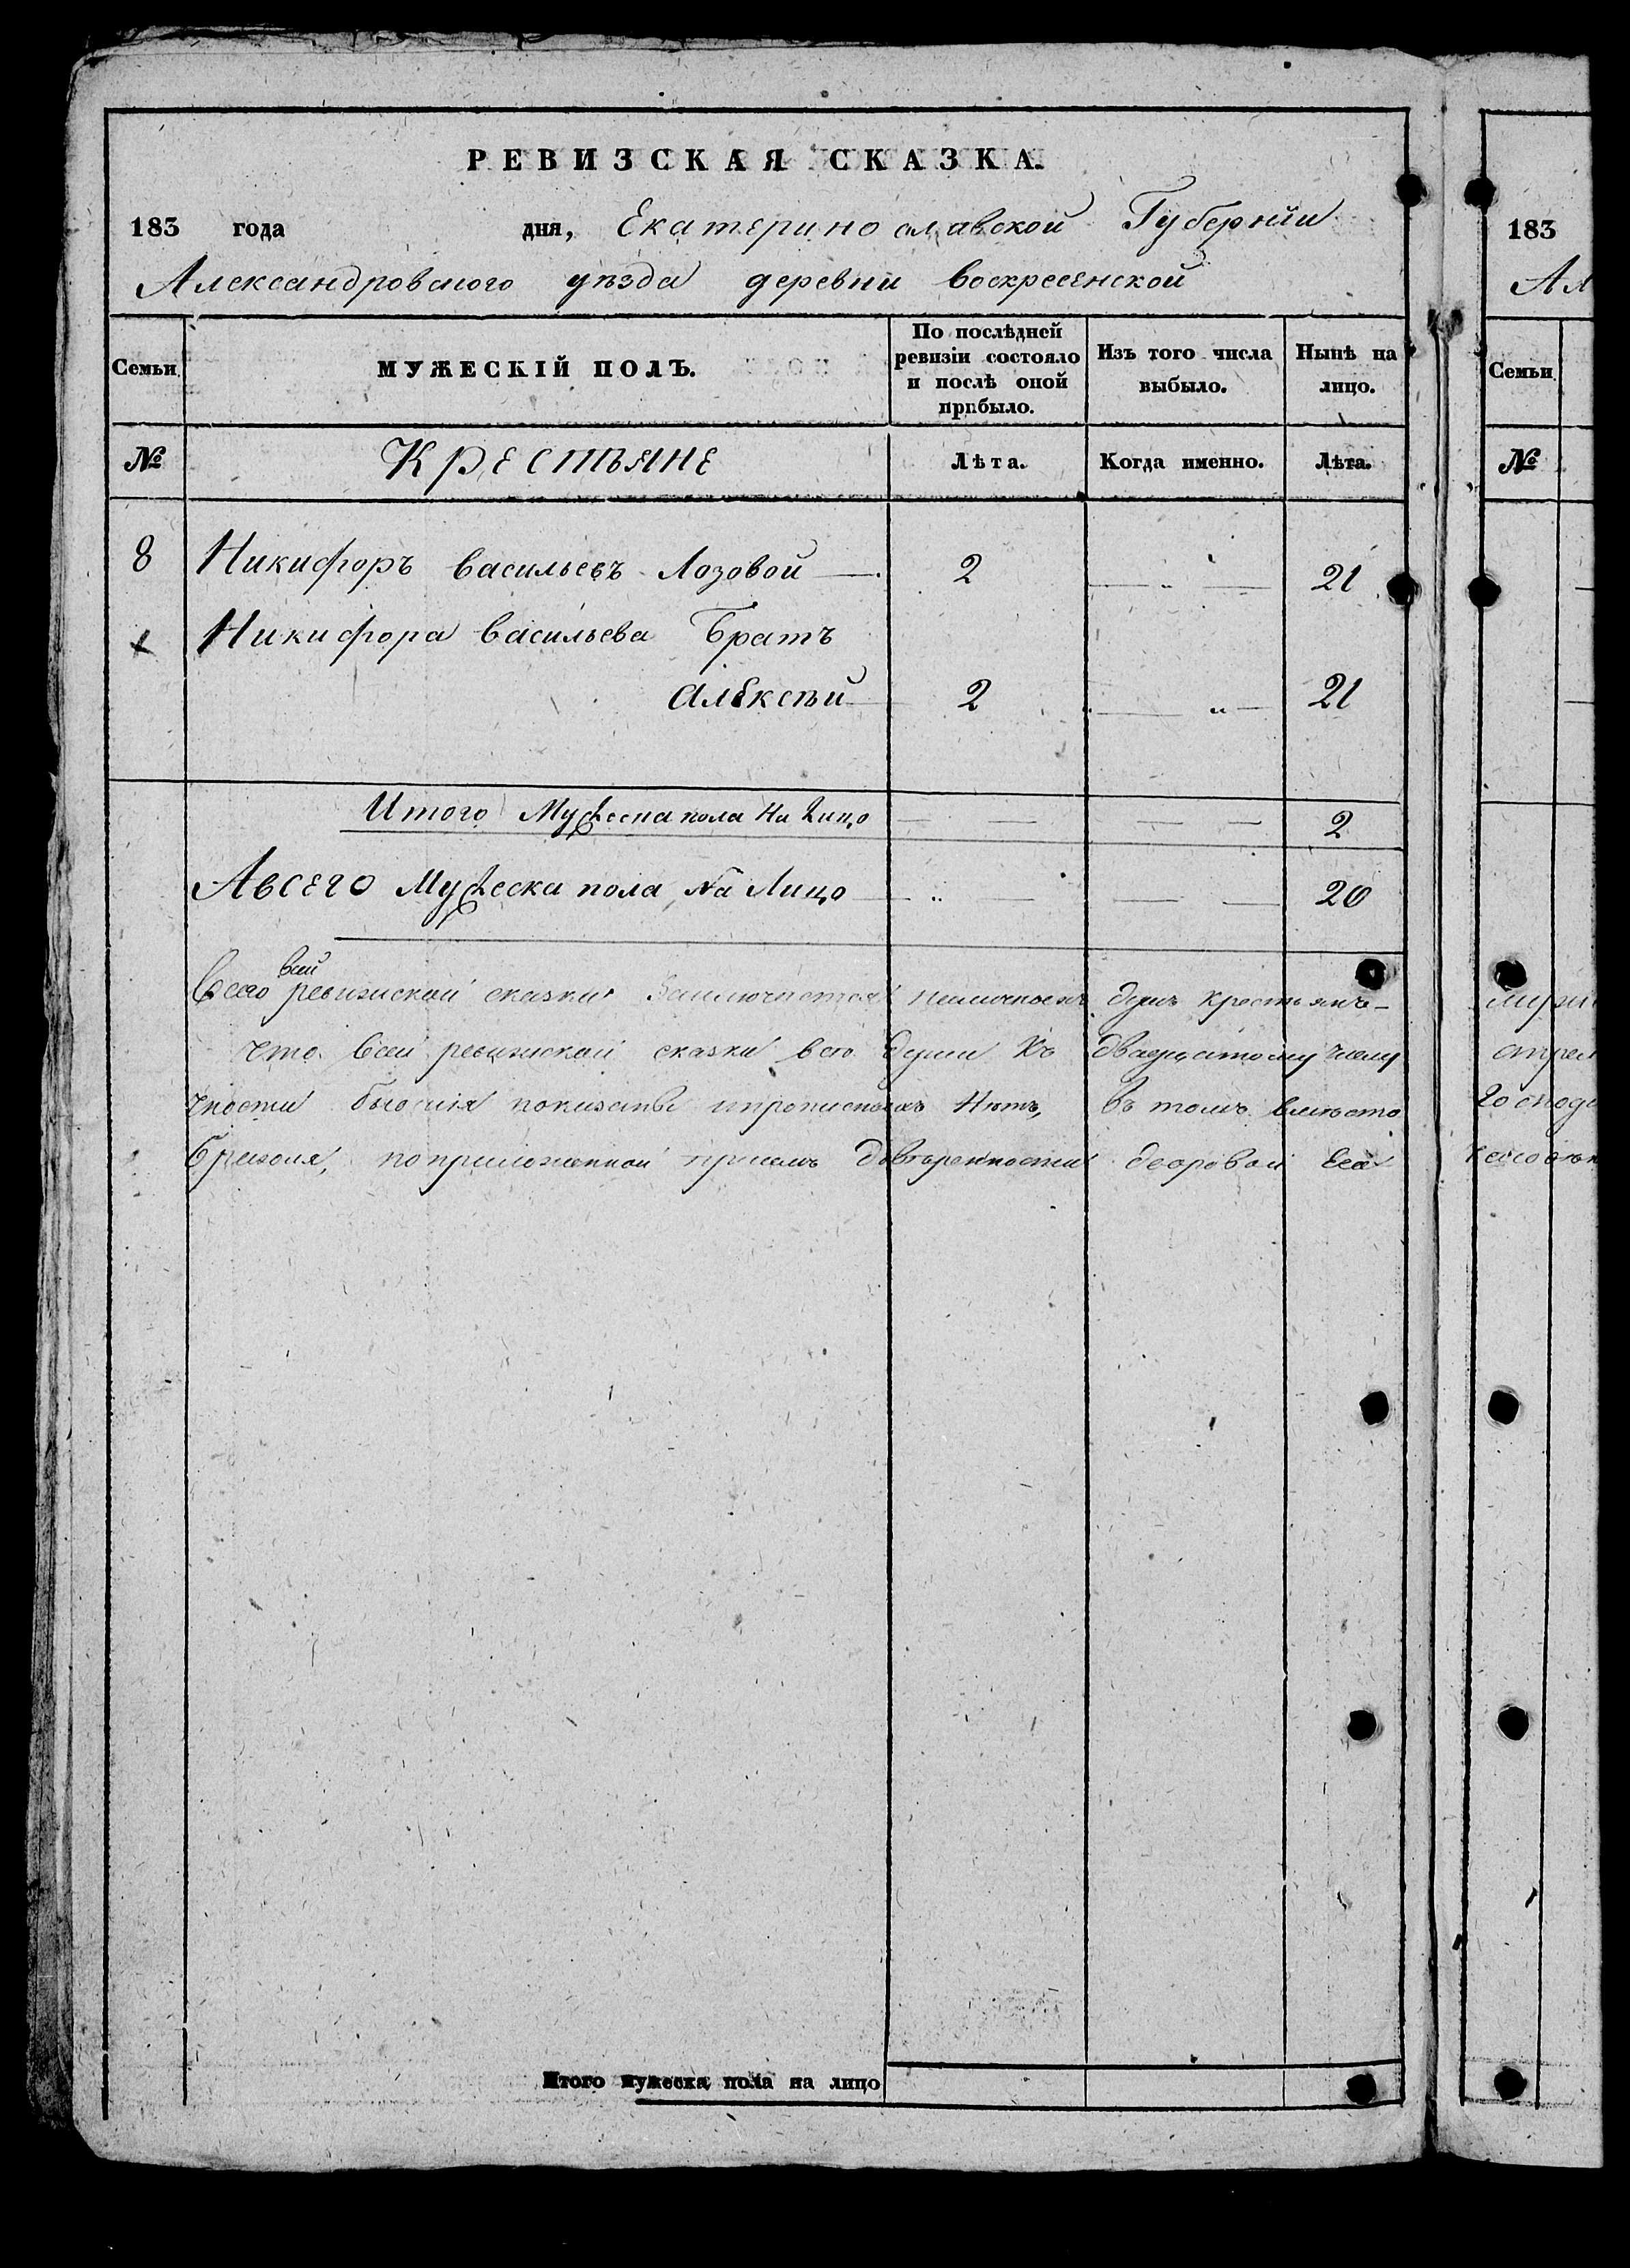 РЕВИЗСКАЯ СКАЗКА.
183 года дня, Екатеринославской Губерніи
Александровского уѣзда деревни Воскресенской
Семьи
МУЖЕСКІЙ ПОЛЪ.
По послѣдней ревизіи состояло и послѣ оной прибыло.
Изъ того числа выбыло.
Нынѣ на лицо.
№ Крестьяне Лѣта. Когда именно. Лѣта.
8 Никифоръ Васильевъ Лозовой 2 — „ — 21
Никифора Васильева Братъ
Алексѣй 2 — „ — 21
Итого Мужеска пола На Лицо — — — — 2
Авсего Мужеска пола На Лицо — „ — — — 20
всей
Всего ревизской сказки душъ крестьянъ
что Всей ревизской сказки всѣ души Къ двадцатому числу
показаны и прописныхъ Нѣтъ, Въ томъ вмѣсто
поприложенной присемъ Довѣренности дворовой Ея
Итого мужеска пола на лицо
183
Ал
Семьи
№